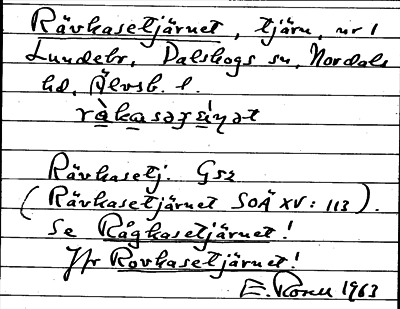 Rävkasetjärnet, tjärn, nr 1
Lundebr, Dalskogs sn, Nordals
hd, Älvsb. l.
Rävkasetj. GSz
(Rävkasetjärnet SOÄ XV: 113).
Se Rågkasetjärnet!
Jfr Rovkasetjärnet!
E. 1963